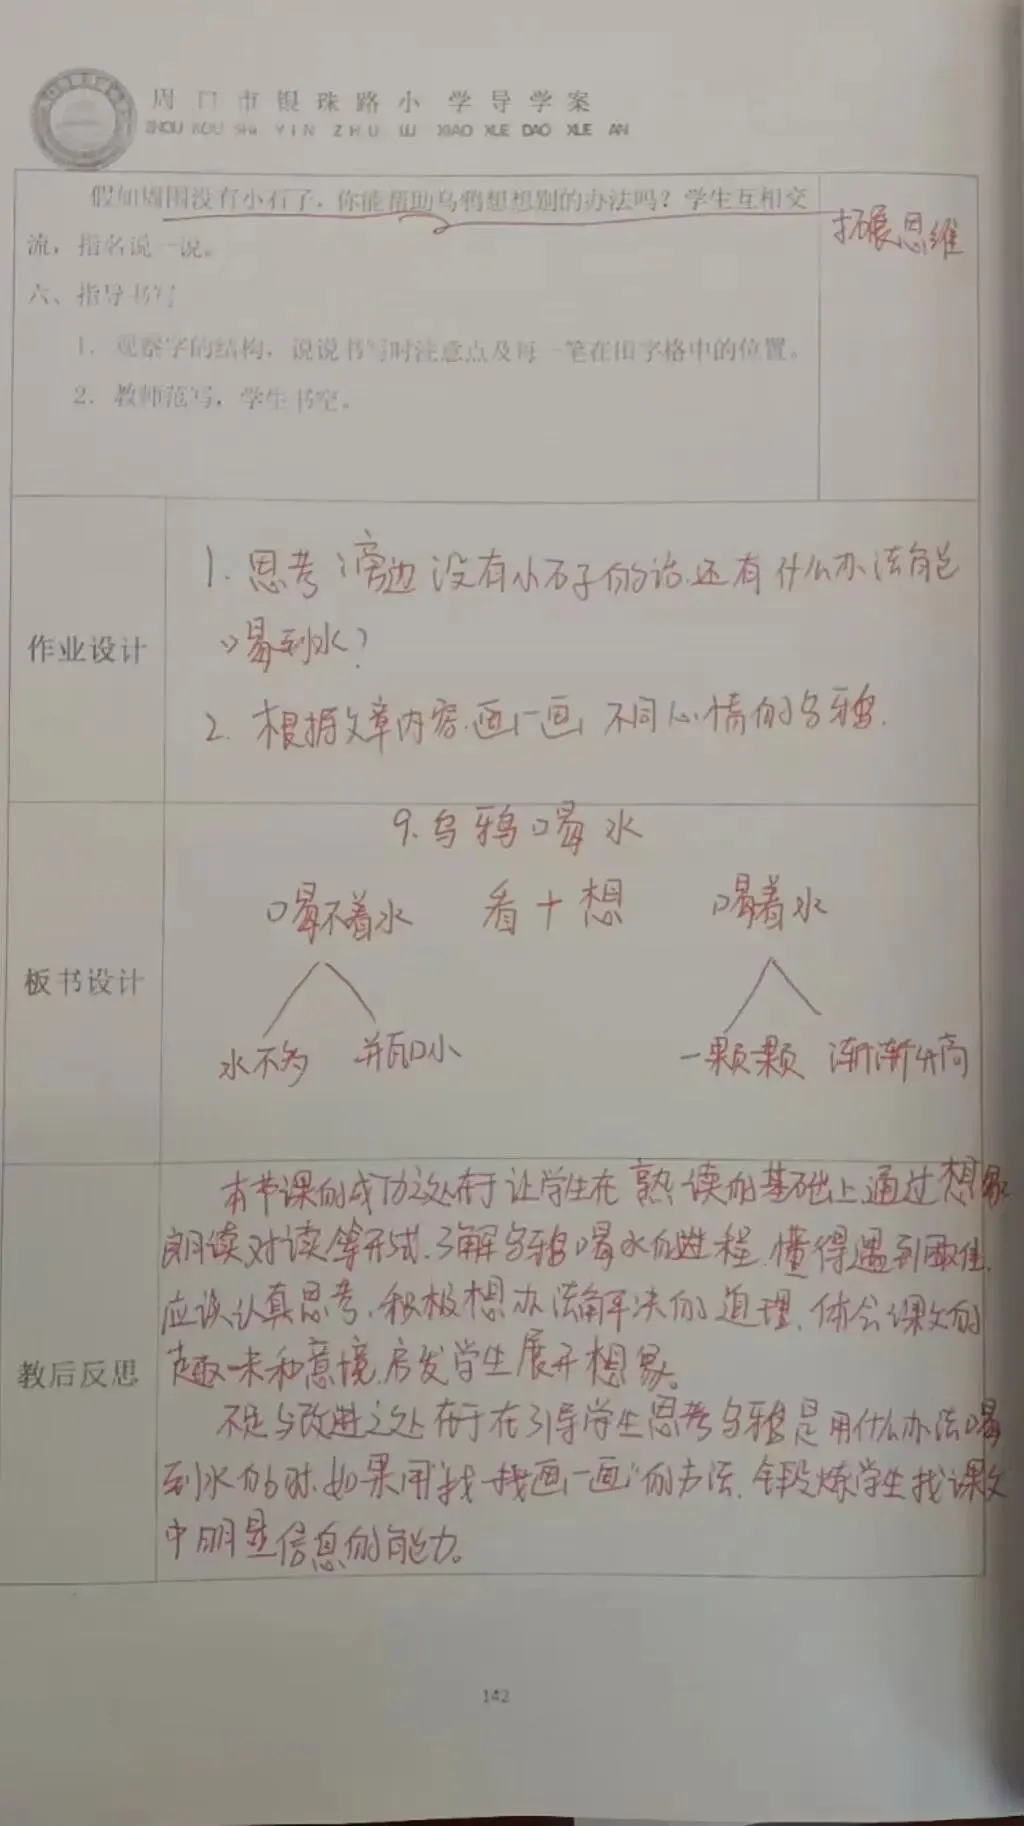 周口市银珠路小学导学案
ZHOU KOU SHI YIN ZHU LU XIAO XUE DAO XUE AN
假如周围没有小石子，你能帮助乌鸦想想别的办法吗？学生互相交
流，指名说一说。
拓展思维
六、指导书写
1. 观察字的结构，说说书写时注意点及每一笔在田字格中的位置。
2. 教师范写，学生书空。
作业设计
1. 思考旁边没有小石子的话.还有什么办法能
喝到水？
2. 根据文章内容.画一画 不同心情的乌鸦.
板书设计
9.乌鸦喝水
喝不着水 看+想 喝着水
水不多 瓶口小 一颗颗 渐渐升高
教后反思
本节课的成功之处在于让学生在熟读的基础上通过想象
朗读对读等形式.了解乌鸦喝水的过程.懂得遇到困难.
应该认真思考.积极想办法解决的道理.体会课文的
趣味和意境.启发学生展开想象。
不足与改进之处在于在引导学生思考乌鸦是用什么办法喝
到水的时.如果用“找一找画一画”的办法.锻炼学生找课文
中明显信息的能力。
142